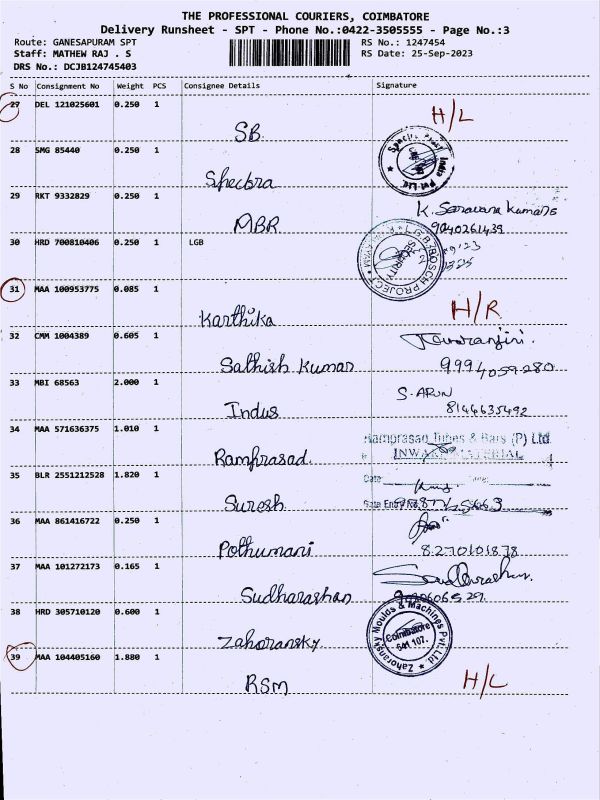 THE PROFESSIONAL COURIERS, COIMBATORE
Delivery Runsheet - SPT - Phone No.:0422-3505555 - Page No.:3
Route: GANESAPURAM SPT RS No.: 1247454
Staff: MATHEW RAJ . S RS Date: 25-Sep-2023
DRS No.: DCJB124745403
S No Consignment No Weight PCS Consignee Details Signature
27 DEL 121025601 0.250 1
SB H/L
28 SMG 85440 0.250 1
Spectra
29 RKT 9332829 0.250 1
MBR K. Saravana Kumar
9040261439
30 HRD 700810406 0.250 1 LGB
SECURITY
31 MAA 100953775 0.085 1
Karthika H/R
32 CMM 1004389 0.605 1
Sathish Kumar 9994059280
33 MBI 68563 2.000 1 S. ARUN
Indus 8144635492
34 MAA 571636375 1.010 1
Ramprasad Tubes & Bars (P) Ltd
Ramprasad. INWARD MATERIAL
35 BLR 2551212528 1.820 1 Date
Suresh Gate Entry No.
36 MAA 861416722 0.250 1
Pothumani 8270101878
37 MAA 101272173 0.165 1
Sudharashan
38 HRD 305710120 0.600 1
Zahoransky. Zahoransky Moulds & Machines Pvt. Ltd
Coimbatore
641 107.
39 MAA 104405160 1.880 1
RSM H/L